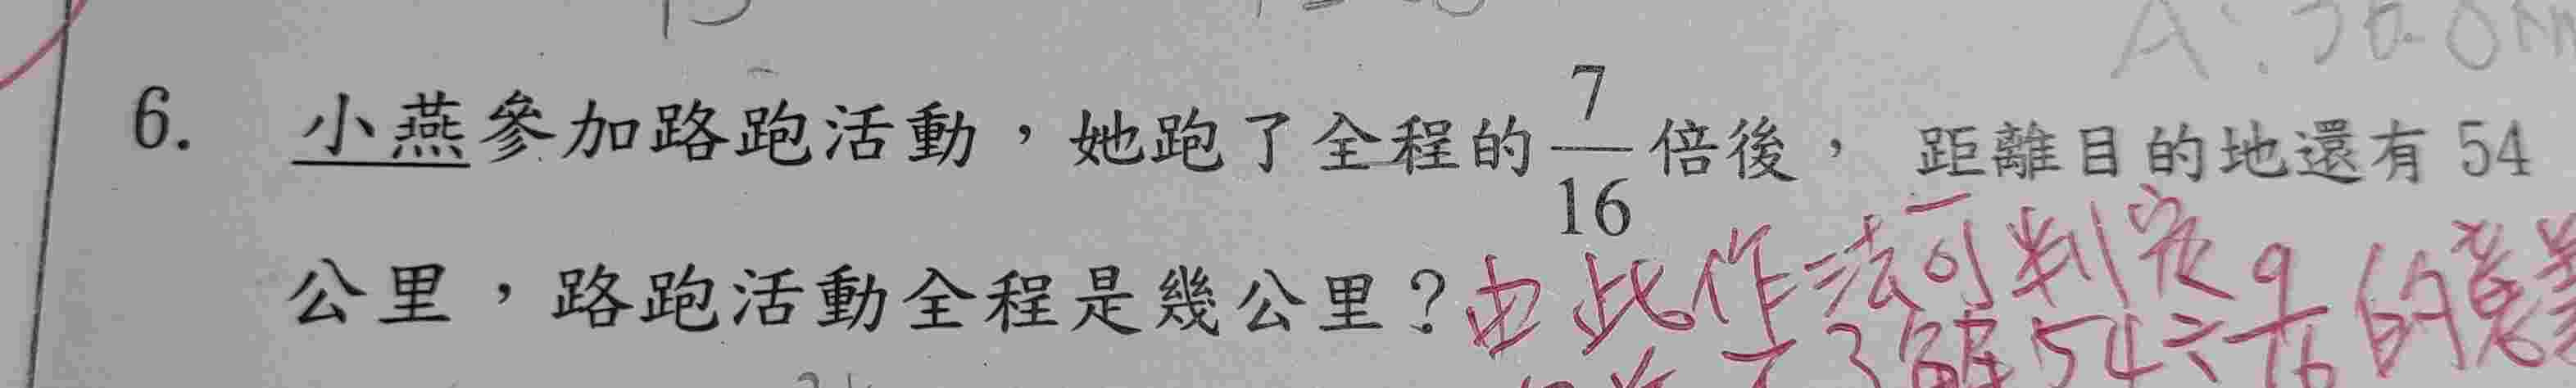 6. 小燕參加路跑活動，她跑了全程的 7/16 倍後， 距離目的地還有 54
公里，路跑活動全程是幾公里？
由此作法可判定
了解 54÷9/16 的意義